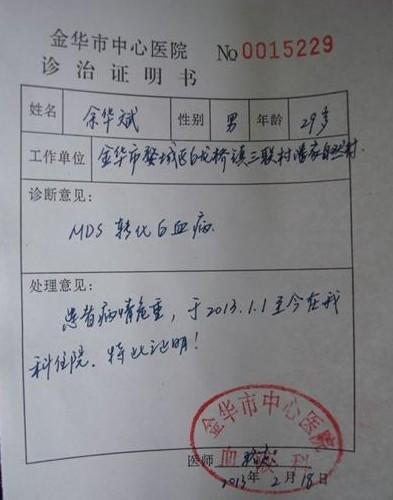 金华市中心医院 No 0015229
诊治证明书
姓名 余华斌 性别 男 年龄 29岁
工作单位 金华市婺城区白龙桥镇三联村潘家自然村
诊断意见:
MDS 转化白血病
处理意见:
患者病情危重,于2013.1.1至今在我
科住院。特此证明!
金华市中心医院
血液科
医师
2013年2月18日